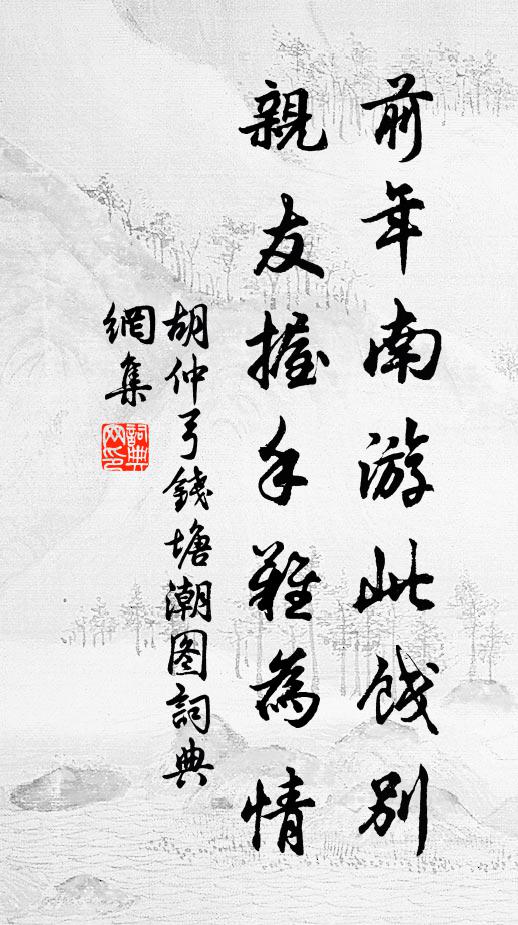 前年南游此餞别
親友握手難為情
胡仲弓錢塘潮图詞典
網集
詞典
网印